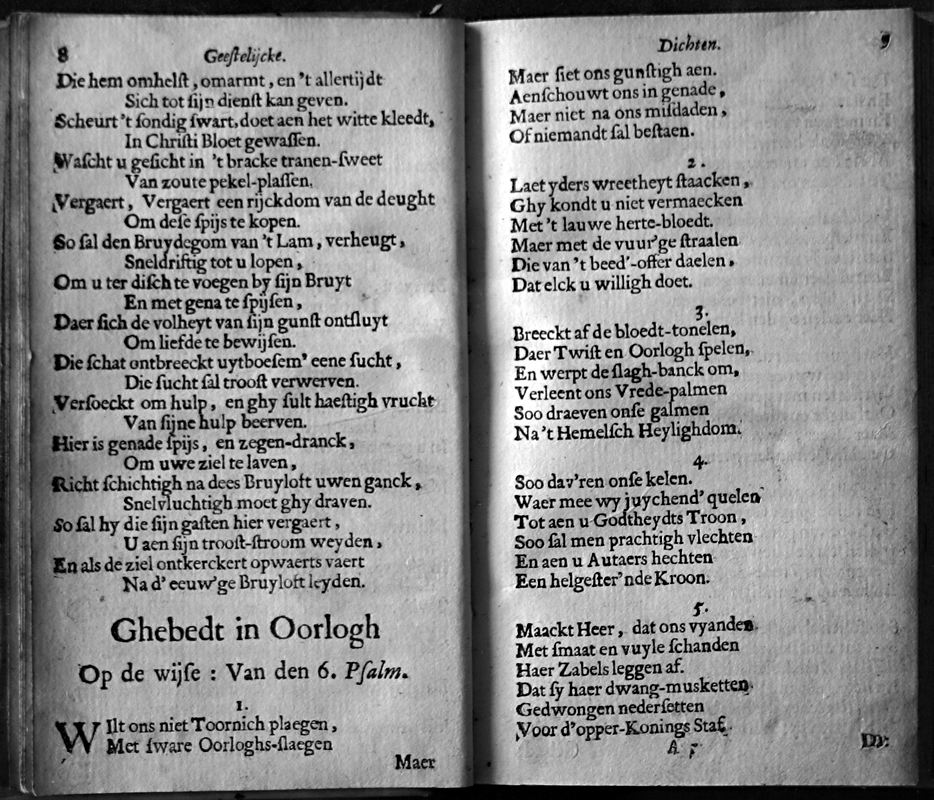 8
Geeſtelijcke.
Die hem omhelſt, omarmt, en 't allertijdt
Sich tot ſijn dienſt kan geven.
Scheurt 't ſondig ſwart, doet aen het witte kleedt,
In Chriſti Bloet gewaſſen.
Waſcht u geſicht in 't bracke tranen-ſweet
Van zoute pekel-plaſſen.
Vergaert, Vergaert een rijckdom van de deught
Om deſe ſpijs te kopen.
So ſal den Bruydegom van 't Lam, verheugt,
Sneldriftig tot u lopen,
Om u ter diſch te voegen by ſijn Bruyt
En met gena te ſpijſen,
Daer ſich de volheyt van ſijn gunſt ontſluyt
Om liefde te bewijſen.
Die ſchat ontbreeckt uytboeſem' eene ſucht,
Die ſucht ſal trooſt verwerven.
Verſoeckt om hulp, en ghy ſult haeſtigh vrucht
Van ſijne hulp beerven.
Hier is genade ſpijs, en zegen-dranck,
Om uwe ziel te laven,
Richt ſchichtigh na dees Bruyloft uwen ganck,
Snelvluchtigh moet ghy draven.
So ſal hy die ſijn gaſten hier vergaert,
U aen ſijn trooſt-ſtroom weyden,
En als de ziel ontkerckert opwaerts vaert
Na d' eeuw'ge Bruyloft leyden.
Ghebedt in Oorlogh
Op de wijſe : Van den 6. Pſalm.
1.
WIlt ons niet Toornich plaegen,
Met ſware Oorloghs-ſlaegen
Maer
Dichten.
9
Maer ſiet ons gunſtigh aen.
Aenſchouwt ons in genade,
Maer niet na ons miſdaden,
Of niemandt ſal beſtaen.
2.
Laet yders wreetheyt ſtaacken,
Ghy kondt u niet vermaecken
Met 't lauwe herte-bloedt.
Maer met de vuur'ge ſtraalen
Die van 't beed'-offer daelen,
Dat elck u willigh doet.
3.
Breeckt af de bloedt-tonelen,
Daer Twiſt en Oorlogh ſpelen,
En werpt de ſlagh-banck om,
Verleent ons Vrede-palmen
Soo draeven onſe galmen
Na 't Hemelſch Heylighdom.
4.
Soo dav'ren onſe kelen.
Waer mee wy juychend' quelen
Tot aen u Godtheydts Troon,
Soo ſal men prachtigh vlechten
En aen u Autaers hechten
Een helgeſter'nde Kroon.
5.
Maackt Heer, dat ons vyanden
Met ſmaat en vuyle ſchanden
Haer Zabels leggen af.
Dat ſy haer dwang-musketten
Gedwongen nederſetten
Voor d'opper-Konings Staf.
A